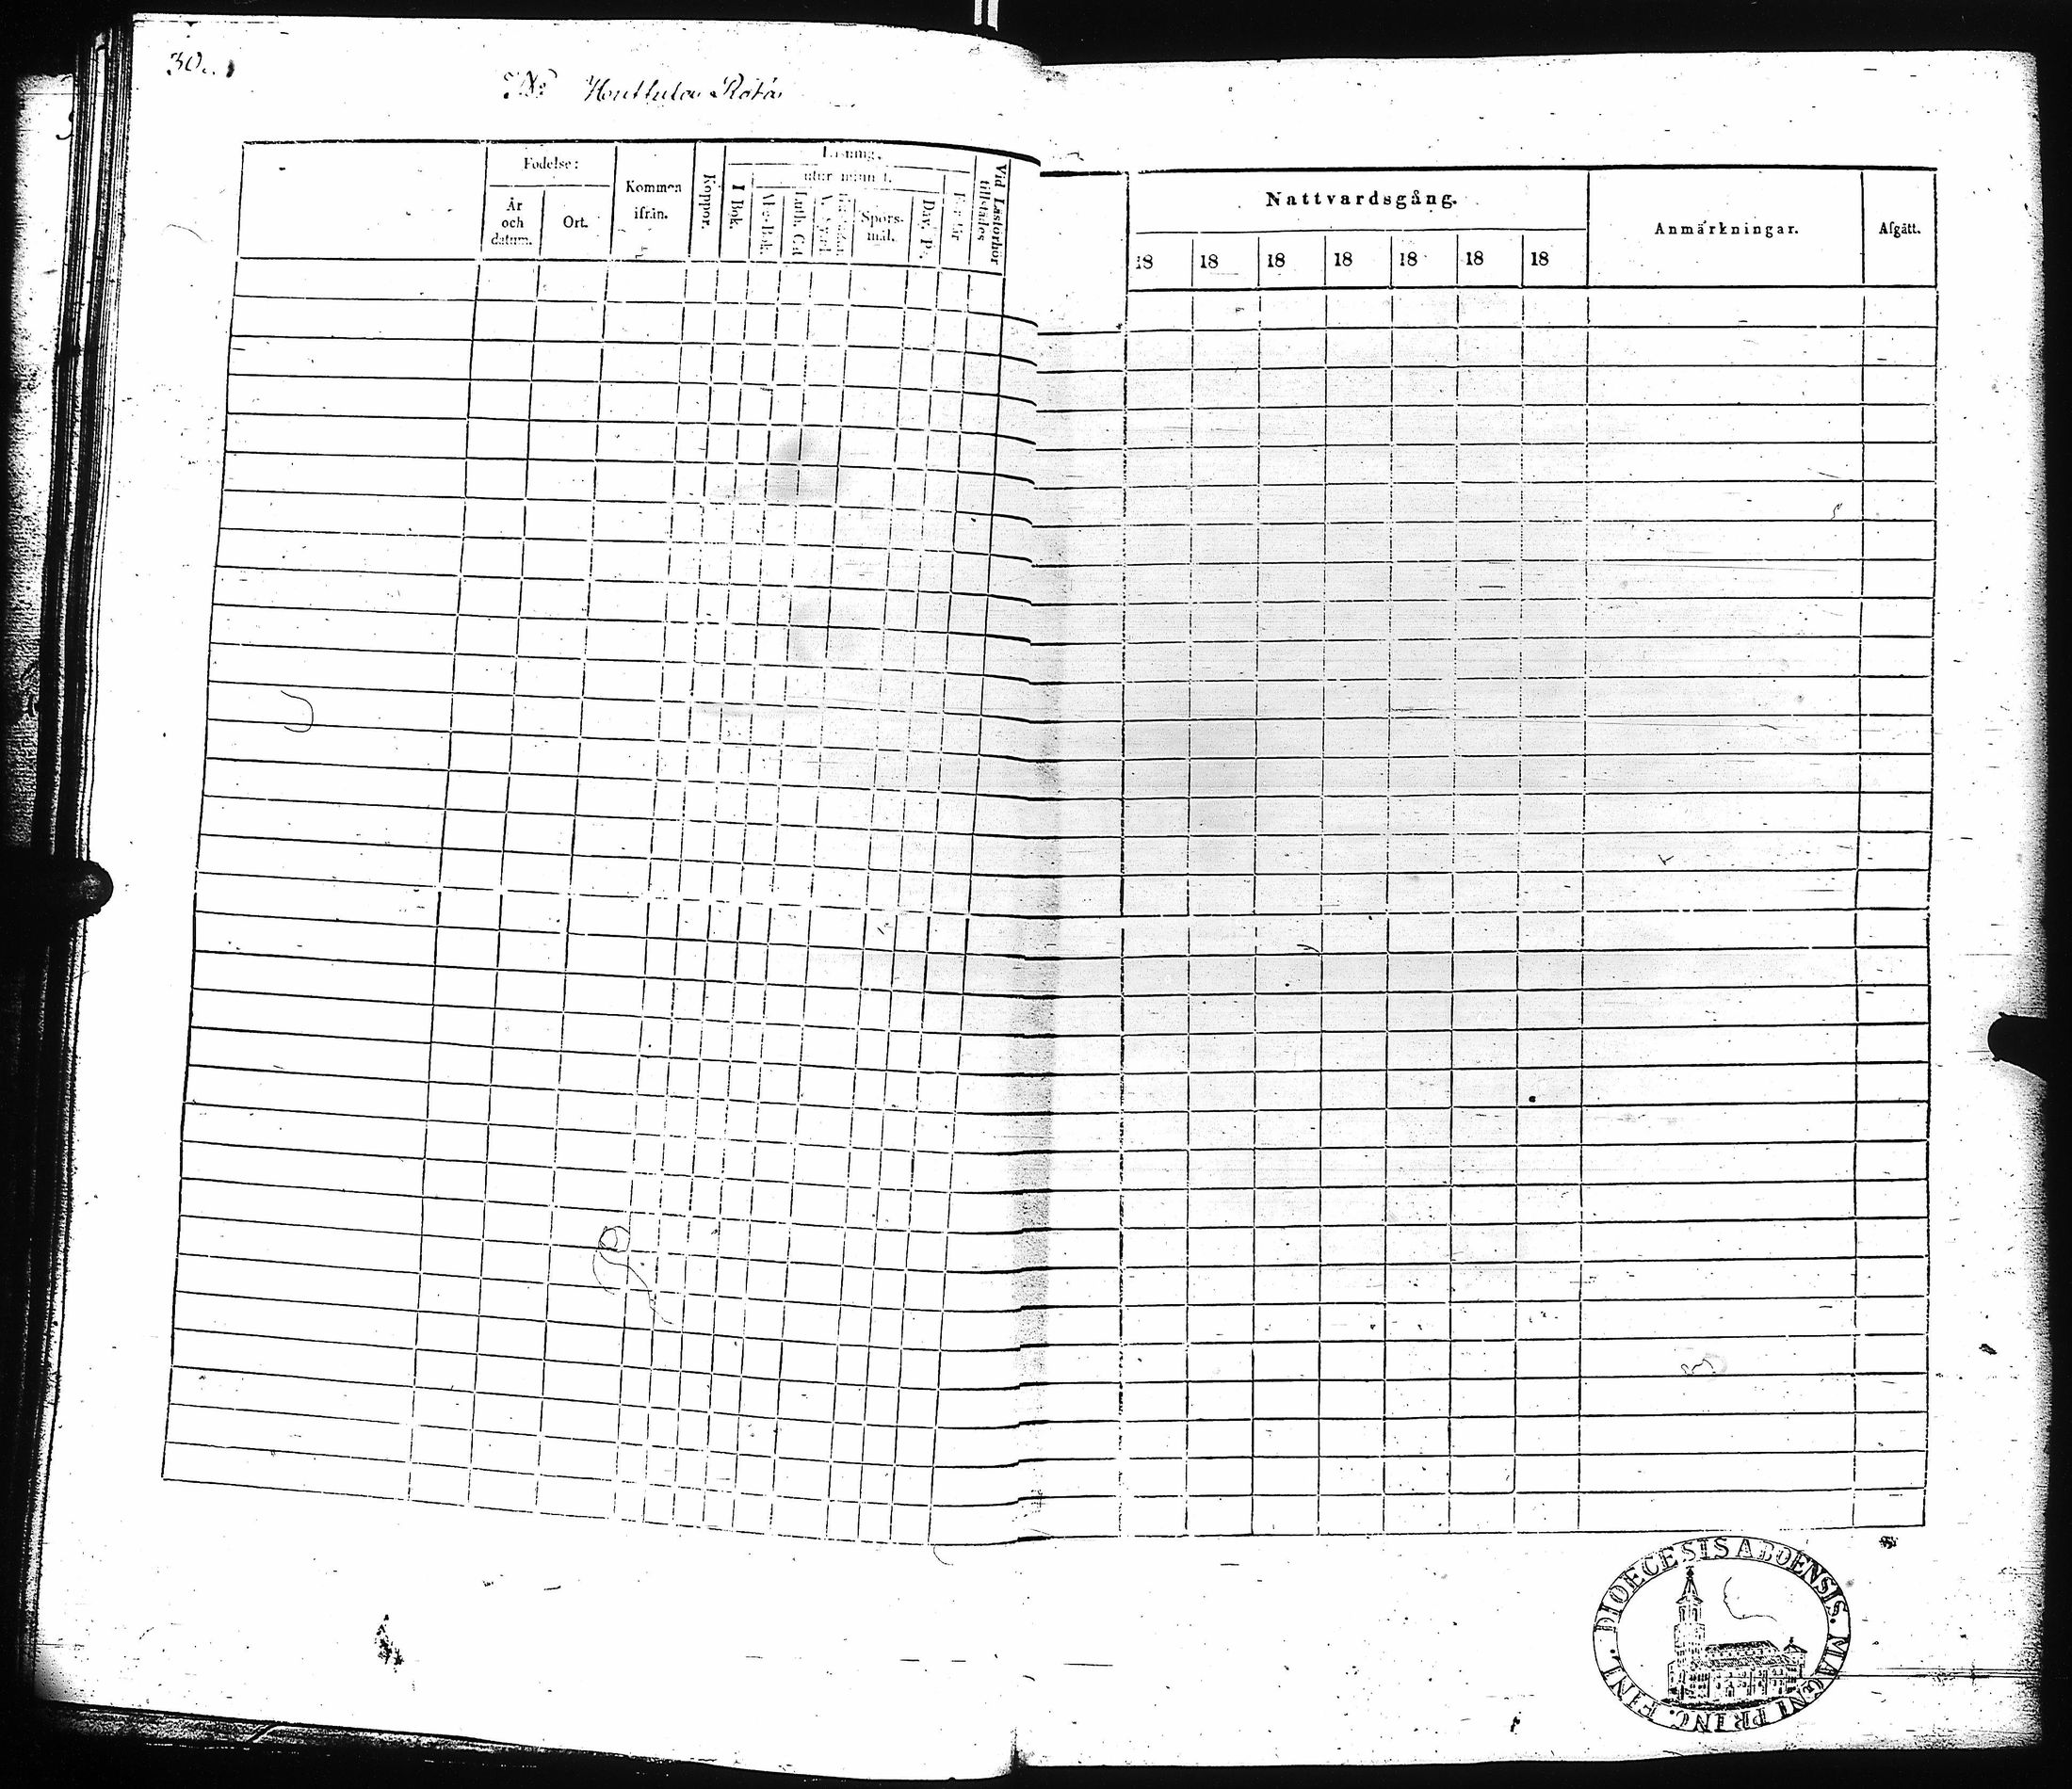 30.
No Huttula Rota
Födelse:
År
och
datum.
Ort.
Kommen
ifrån.
Koppor.
Läsning.
utur minnet.
I Bok.
Abc-Bok.
Luth. Cat
Spörs-
mål.
Dav. Ps.
Vid Läsförhör
tillstädes
Nattvardsgång.
18 18 18 18 18 18 18
Anmärkningar.
Afgått.
DIOECESIS ABOENSIS. MAGNI PRINC. FINL.